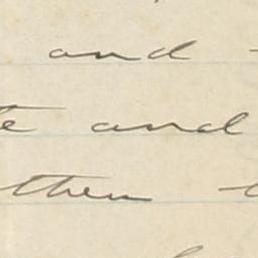 and
and
then